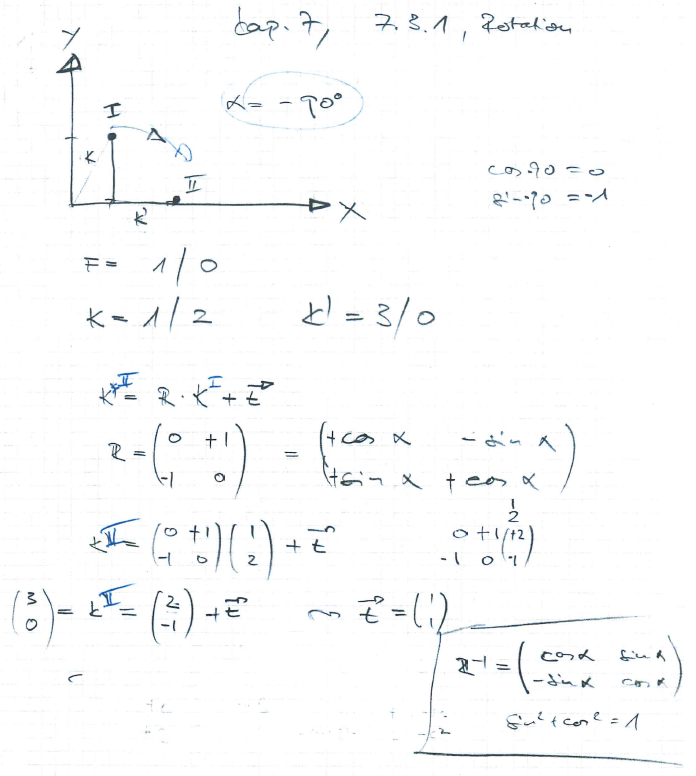 Kap. 7, 7.3.1, Rotation
Y
I
α = -90°
K
II
K'
X
cos -90 = 0
sin -90 = -1
F = 1/0
K = 1/2 K' = 3/0
K^II = R · K^I + t
R = (0 +1 -1 0) = (+cos α - sin α +sin α + cos α)
K^II = (0 +1 -1 0) (1 2) + t
1
2
0 +1 (+2
-1 0 -1)
(3 0) = K^II = (2 -1) + t ~> t = (1 1)
R^-1 = (cos α sin α -sin α cos α)
sin² + cos² = 1